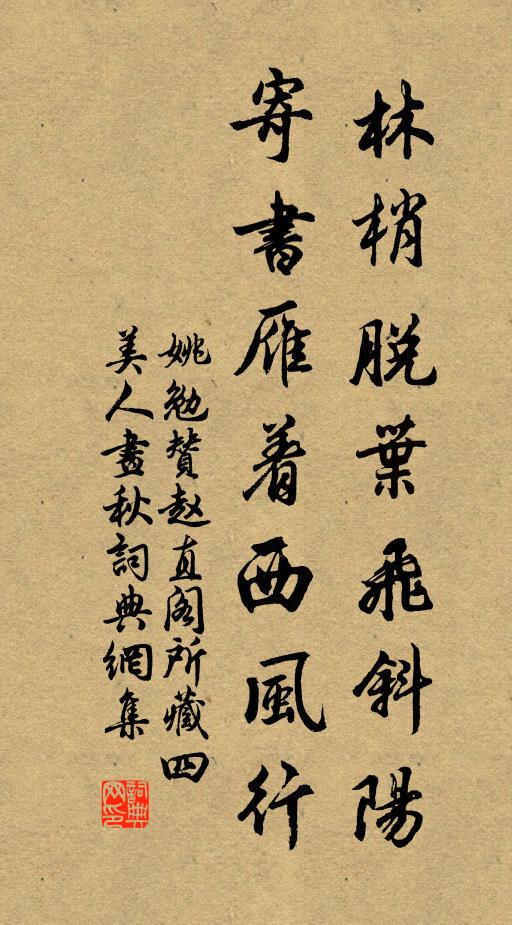 林梢脱葉飛斜陽
寄書雁着西風行
姚勉賛赵直阁所藏四
美人畫秋詞典網集
詞典网印